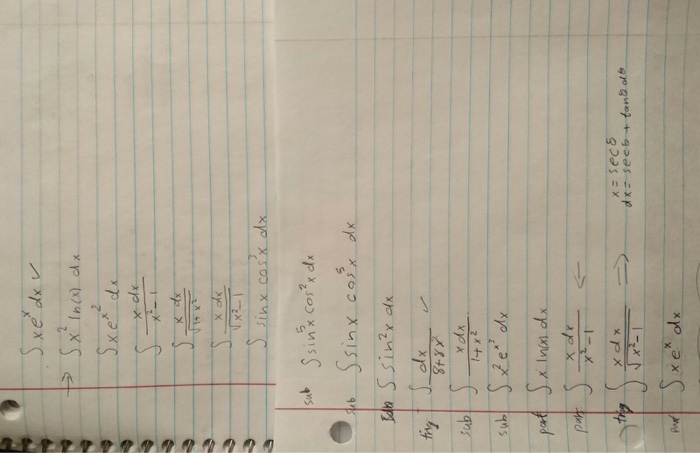 ∫ x e^x dx ✓
→ ∫ x^2 ln(x) dx
∫ x e^{x^2} dx
∫ x dx / (x^2 - 1)
∫ x dx / √(1 + x^2)
∫ x dx / √(x^2 - 1)
∫ sin x cos^3 x dx
sub ∫ sin^5 x cos^2 x dx
sub ∫ sin x cos^5 x dx
∫ sin^2 x dx
trig ∫ dx / (8 + 8x^2) ✓
sub ∫ x dx / (1 + x^2)
sub ∫ x^2 e^{x^3} dx
part ∫ x ln(x) dx
part ∫ x dx / (x^2 - 1) ←
trig ∫ x dx / √(x^2 - 1) ⇒ x = sec θ
dx = sec θ + tan θ dθ
part ∫ x e^x dx